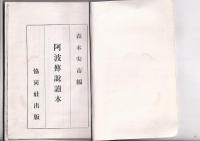 森本安市編
阿波傳説讀本
協同社出版